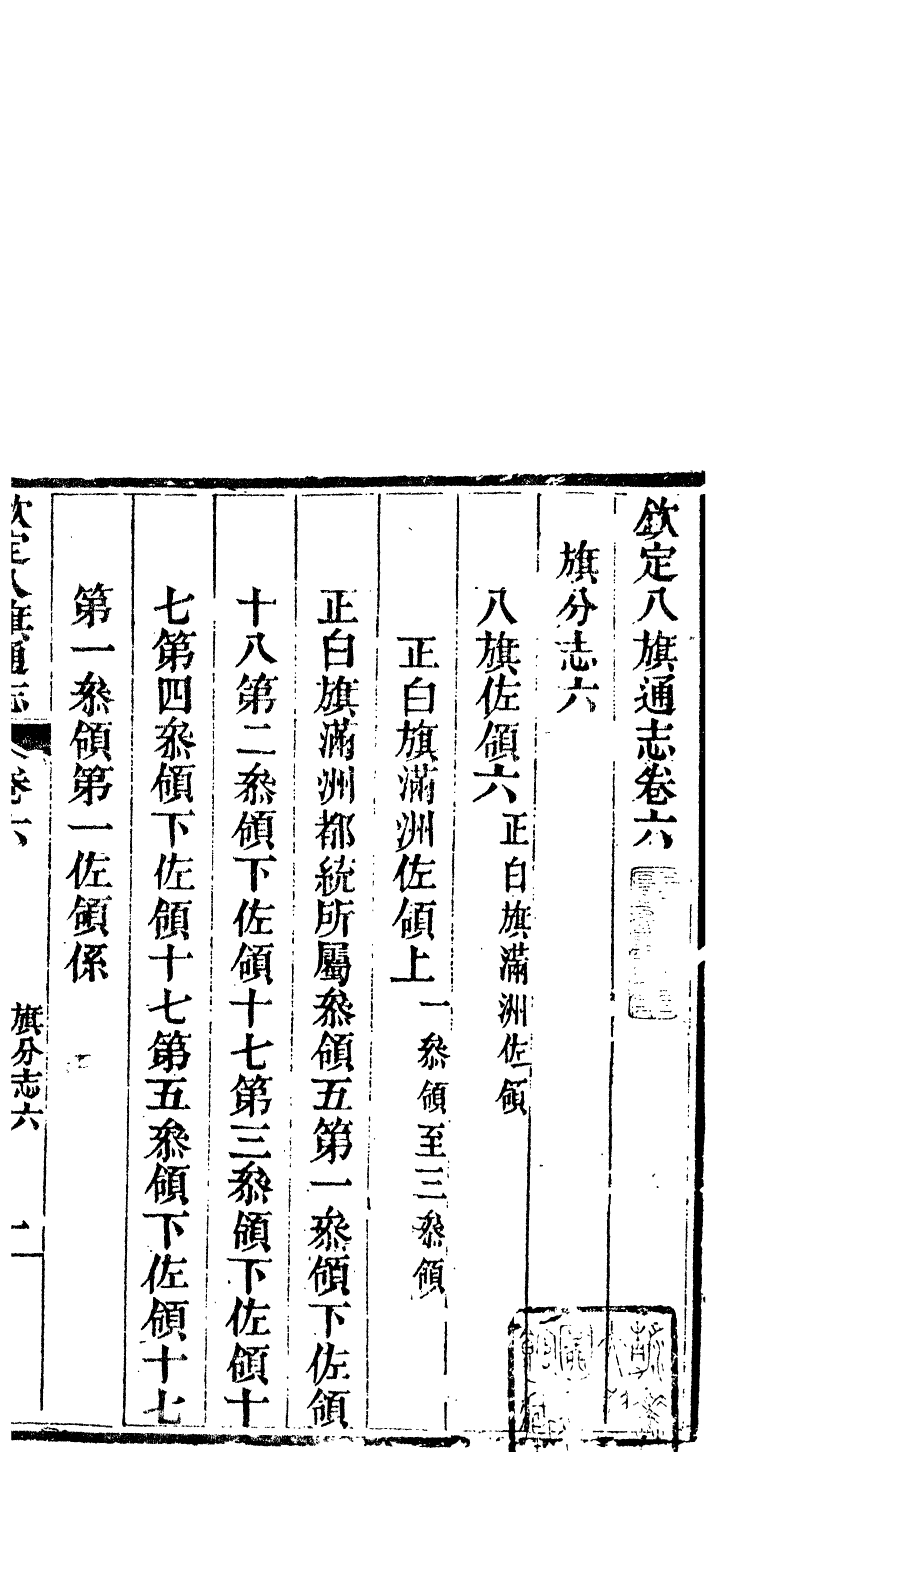 欽定八旗通志卷六
旗分志六
八旗佐領六正白旗滿洲佐領
正白旗滿洲佐領上一叅領至三叅領
正白旗滿洲都統所屬叅領五第一叅領下佐領
十八第二叅領下佐領十七第三叅領下佐領十
七第四叅領下佐領十七第五叅領下佐領十七
第一叅領第一佐領係
欽定八旗通志 卷六 旗分志六